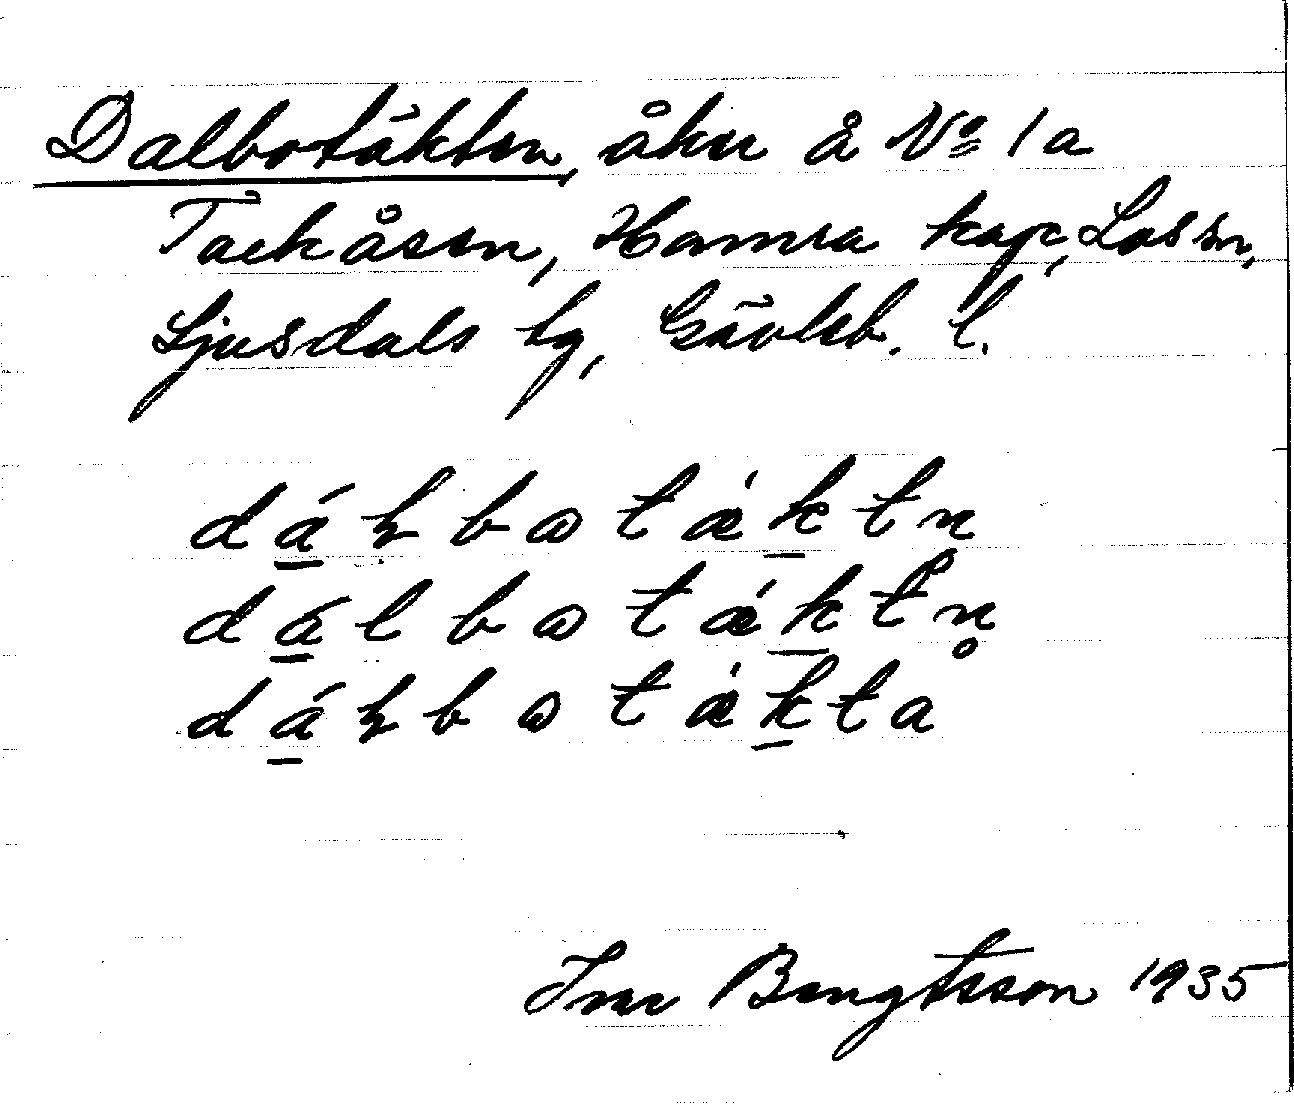 Dalbotäkten, åker å No 1a
Tackåsen, Hamra kap, Los sn,
Ljusdals tg, Gävleb. l.
dáɫbɷtǽktn
dálbɷtǽktn̥
dáɫbɷtǽkta
Ivar Bengtsson 1935